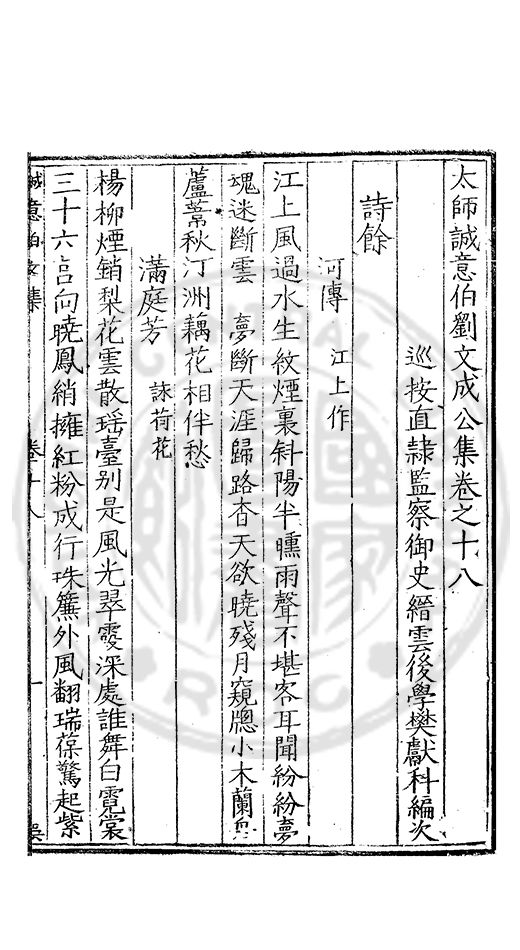 太師誠意伯劉文成公集卷之十八
巡按直隷監察御史縉雲後學樊獻科編次
詩餘
河傳 江上作
江上風過水生紋煙裏斜陽半曛雨聲不堪客耳聞紛紛夢
魂迷斷雲 夢斷天涯歸路杳天欲曉殘月窺牕小木蘭舟
蘆葦秋汀洲藕花相伴愁
滿庭芳 詠荷花
楊柳煙銷梨花雲散瑶臺别是風光翠霞深處誰舞白霓裳
三十六宫向曉鳳綃擁紅粉成行珠簾外風翻瑞葆驚起紫
誠意伯文集 卷十八 一